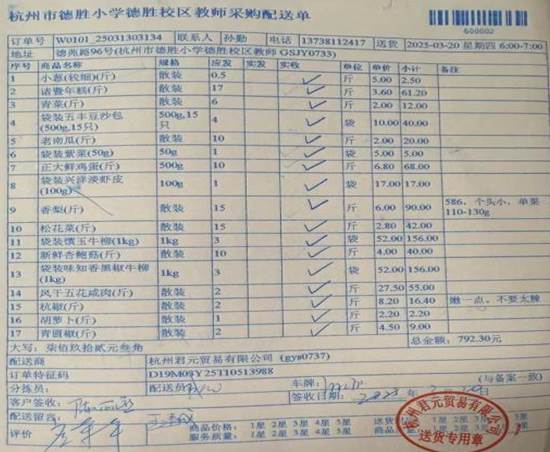 杭州市德胜小学德胜校区教师采购配送单
600002
订单号 W0101_25031303134 联系人 孙勤 电话 13738112417 送货 2025-03-20 星期四 6:00-7:00
地址 德苑路96号(杭州市德胜小学德胜校区教师 GSJY0733)
序号 商品名称 规格 应发 实发 实收 单位 单价 小计 备注
1 小葱(较细)(斤) 散装 0.5 斤 5.00 2.50
2 诸暨年糕(斤) 散装 17 斤 3.60 61.20
3 青菜(斤) 散装 6 斤 2.00 12.00
4 袋装五丰豆沙包(500g,15只) 500g,15只 4 袋 10.00 40.00
5 老南瓜(斤) 散装 10 斤 2.00 20.00
6 袋装紫菜(50g) 50g 1 袋 5.00 5.00
7 正大鲜鸡蛋(斤) 500g 10 斤 6.80 68.00
8 袋装兴洋淡虾皮(100g) 100g 1 袋 17.00 17.00
9 香梨(斤) 散装 15 斤 6.00 90.00 586，个头小，单果110-130g
10 松花菜(斤) 散装 15 斤 2.80 42.00
11 袋装馔玉牛柳(1kg) 1kg 3 袋 52.00 156.00
12 新鲜杏鲍菇(斤) 散装 10 斤 4.00 40.00
13 袋装味知香黑椒牛柳(1kg) 1kg 3 袋 52.00 156.00
14 风干五花咸肉(斤) 散装 2 斤 27.50 55.00
15 杭椒(斤) 散装 2 斤 8.20 16.40 嫩一点，不要太辣
16 胡萝卜(斤) 散装 1 斤 2.20 2.20
17 青圆椒(斤) 散装 2 斤 4.50 9.00
大写：柒佰玖拾贰元叁角 总金额：792.30元
配送商 杭州君元贸易有限公司 (gys0737)
订单特征码
分拣员： 配送员 车牌： (与备案一致)
客户签收： 签收日期：
配送留言
评价 商品价格： 1星 2星 3星 4星 5星
服务质量： 1星 2星 3星 4星 5星
杭州君元贸易有限公司
送货专用章